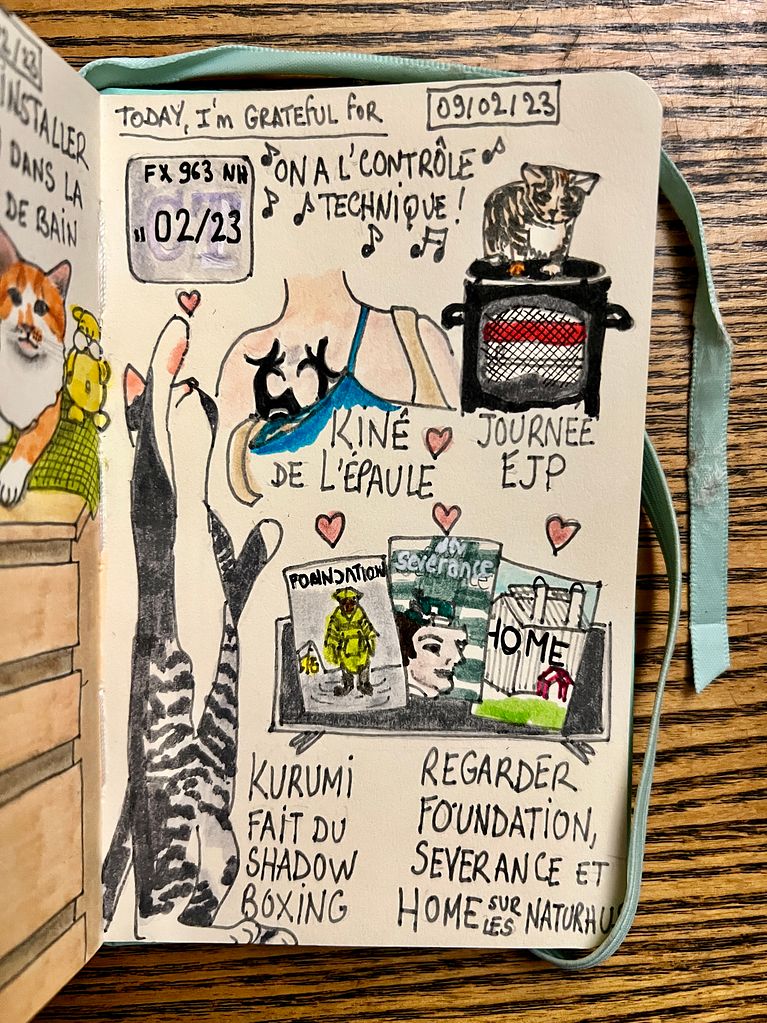 02/23
INSTALLER
DANS LA
DE BAIN
TODAY, I'm GRATEFUL FOR
09/02/23
FX 963 NH
CT
02/23
ON A L'CONTRÔLE
TECHNIQUE!
KINÉ
DE L'ÉPAULE
JOURNÉE
EJP
FOUNDATION
severance
HOME
KURUMI
FAIT DU
SHADOW
BOXING
REGARDER
FOUNDATION,
SEVERANCE ET
HOME SUR LES NATURHUS